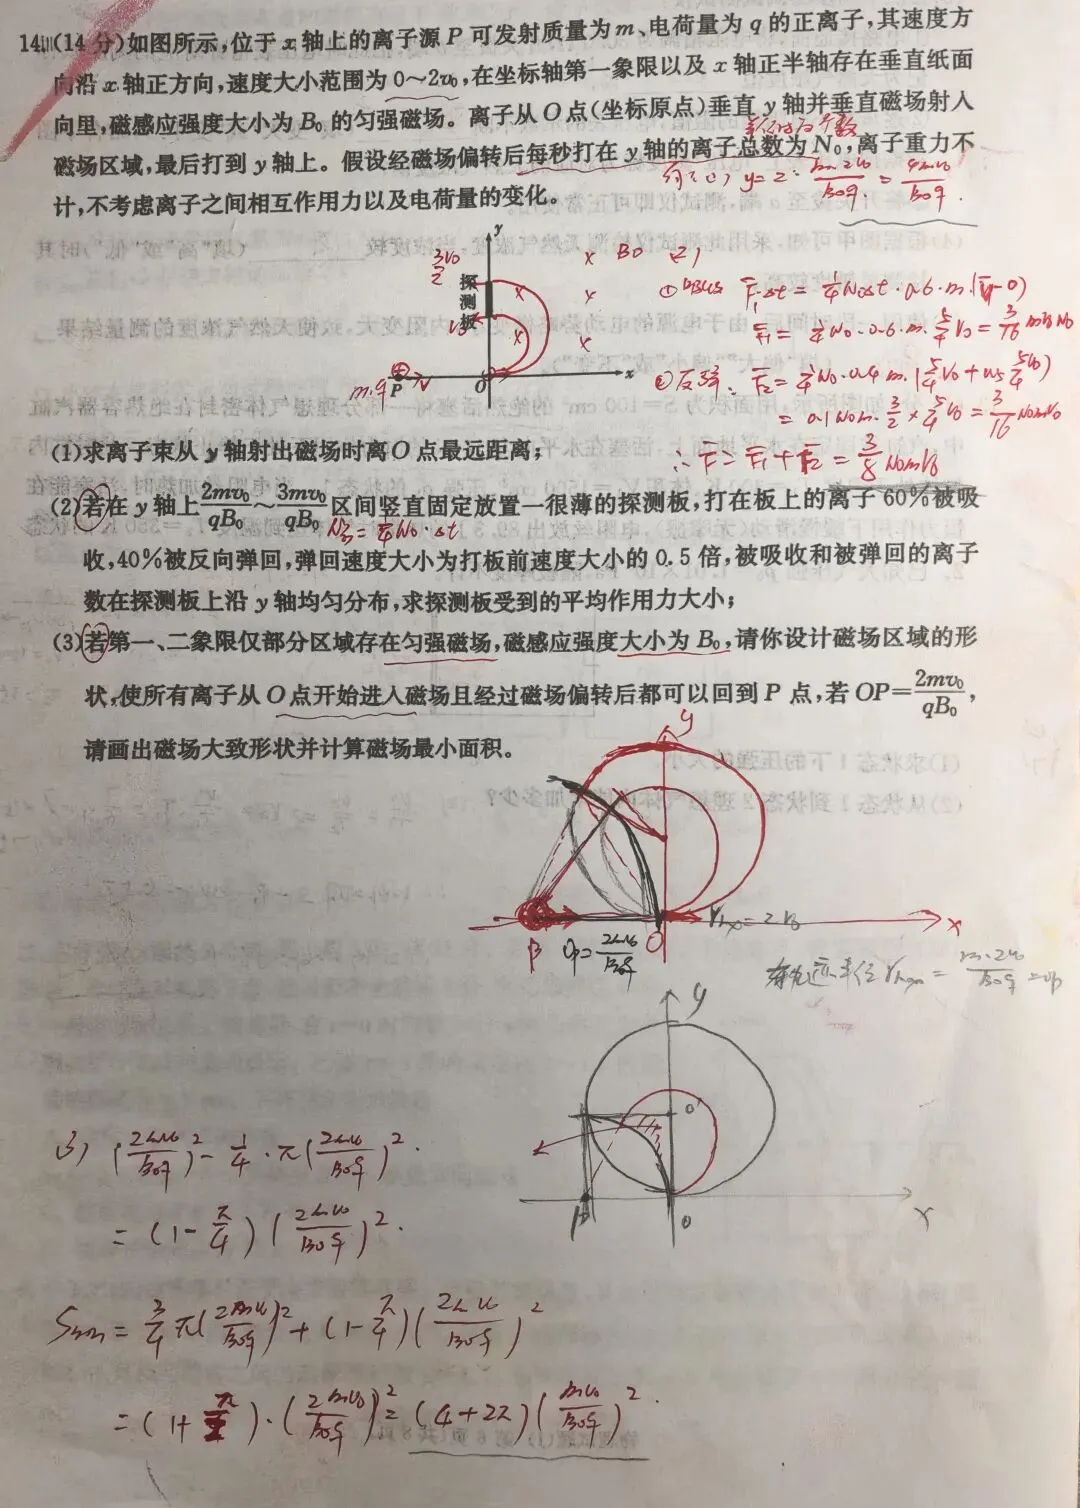 14.(14分)如图所示,位于x轴上的离子源P可发射质量为m、电荷量为q的正离子,其速度方
向沿x轴正方向,速度大小范围为0~2v₀,在坐标轴第一象限以及x轴正半轴存在垂直纸面
向里,磁感应强度大小为B₀的匀强磁场。离子从O点(坐标原点)垂直y轴并垂直磁场射入
磁场区域,最后打到y轴上。假设经磁场偏转后每秒打在y轴的离子总数为N₀,离子重力不
计,不考虑离子之间相互作用力以及电荷量的变化。
y=2·m·2v₀/B₀q=4mv₀/B₀q.
y
3v₀/2
探测板
v₀
m.q
P
v
O
x
B₀
F₁·Δt=1/4N₀Δt·0.6·m·(v̄-0)
F₁=1/4N₀·0.6·m·5/4v₀=3/16mv₀N₀
②反弹: F₂=1/4N₀·0.4m·(5/4v₀+0.5·5/4v₀)
=0.1N₀m·3/2×5/4v₀=3/16N₀mv₀
∴F=F₁+F₂=3/8N₀mv₀
(1)求离子束从y轴射出磁场时离O点最远距离;
(2)若在y轴上2mv₀/qB₀~3mv₀/qB₀区间竖直固定放置一很薄的探测板,打在板上的离子60%被吸
=1/4N₀·Δt
收,40%被反向弹回,弹回速度大小为打板前速度大小的0.5倍,被吸收和被弹回的离子
数在探测板上沿y轴均匀分布,求探测板受到的平均作用力大小;
(3)若第一、二象限仅部分区域存在匀强磁场,磁感应强度大小为B₀,请你设计磁场区域的形
状,使所有离子从O点开始进入磁场且经过磁场偏转后都可以回到P点,若OP=2mv₀/qB₀,
请画出磁场大致形状并计算磁场最小面积。
y
P
OP=2mv₀/B₀q
O
=2v₀
x
=m·2v₀/B₀q=OP
y
O'
P
O
x
3) (2mv₀/B₀q)²-1/4·π(2mv₀/B₀q)².
=(1-π/4)(2mv₀/B₀q)².
Smin=3/4π(2mv₀/B₀q)²+(1-π/4)(2mv₀/B₀q)²
=(1+π/2)·(2mv₀/B₀q)²=(4+2π)(mv₀/B₀q)².